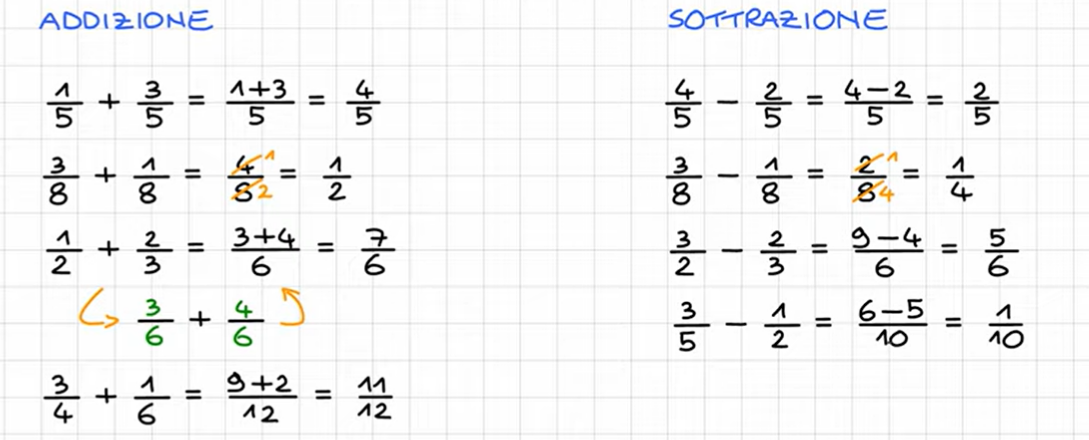 ADDIZIONE
1/5 + 3/5 = 1+3/5 = 4/5
3/8 + 1/8 = 4/8 1 2 = 1/2
1/2 + 2/3 = 3+4/6 = 7/6
3/6 + 4/6
3/4 + 1/6 = 9+2/12 = 11/12
SOTTRAZIONE
4/5 − 2/5 = 4−2/5 = 2/5
3/8 − 1/8 = 2/8 1 4 = 1/4
3/2 − 2/3 = 9−4/6 = 5/6
3/5 − 1/2 = 6−5/10 = 1/10